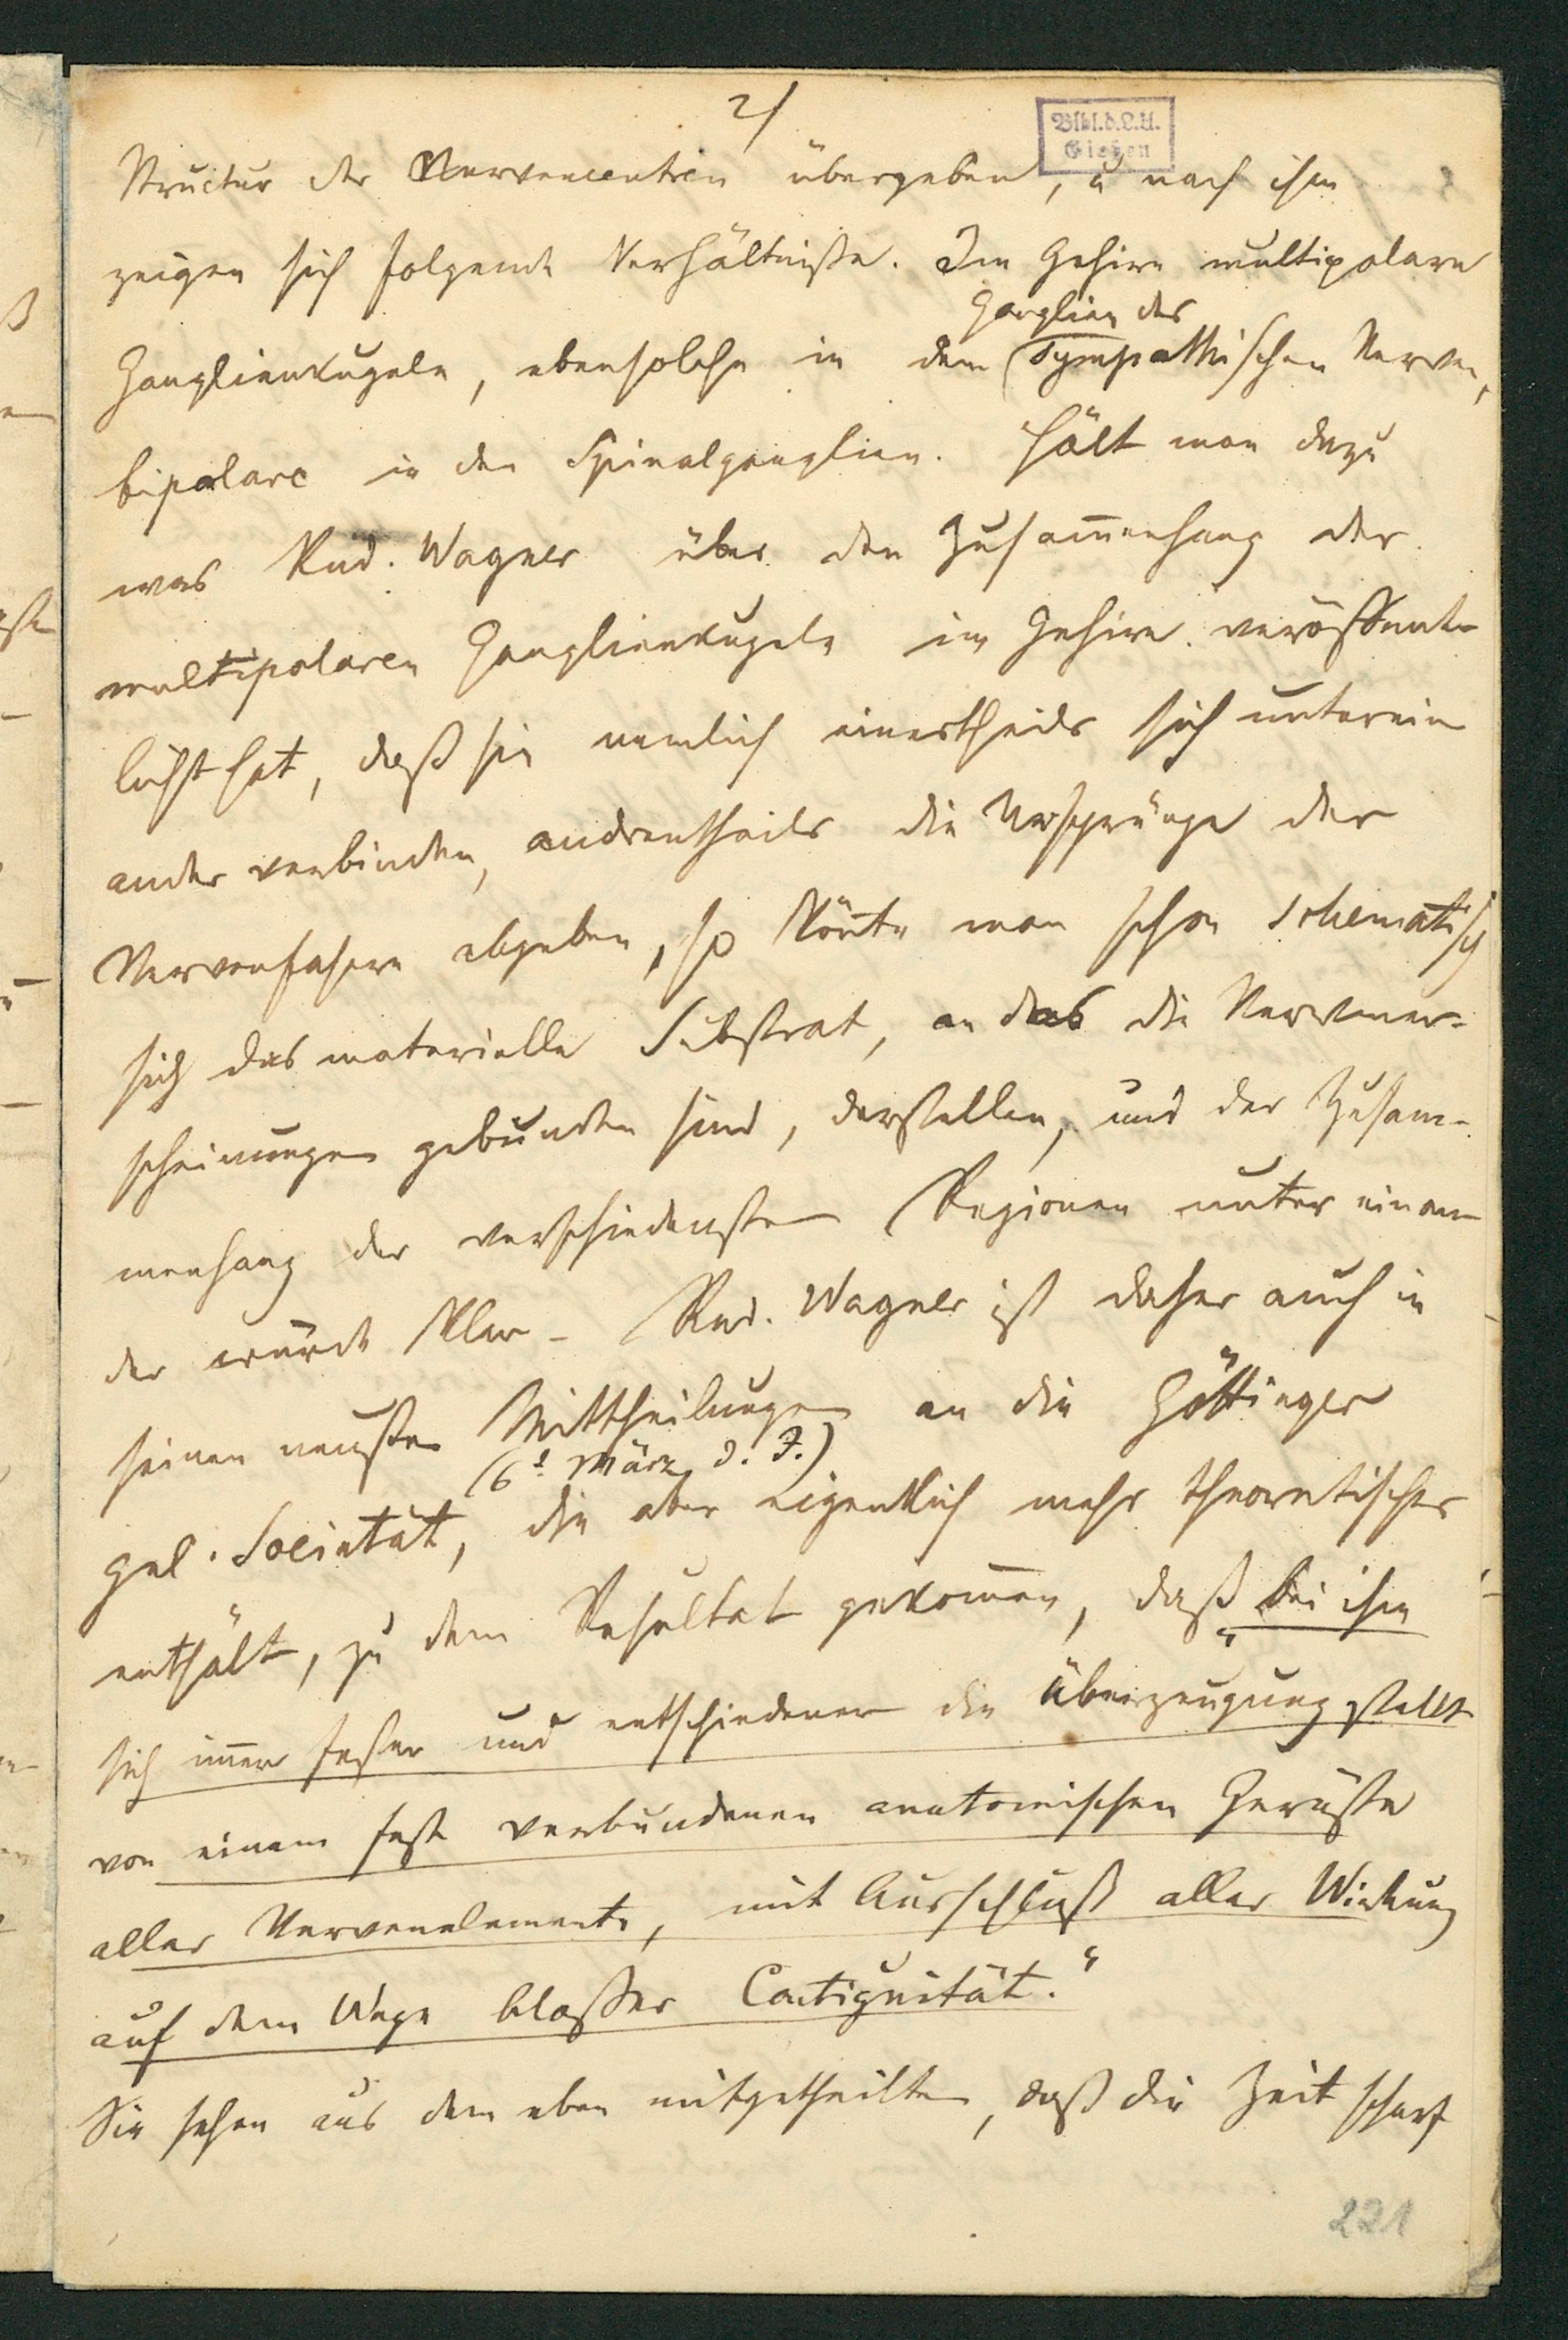 2/
Bibl.d.L.U.
Gießen
Structur der Nervencentren übergeben, u nach ihm
zeigen sich folgende Verhältniße. Im Gehirn multipolare
Ganglien des
Ganglienkugeln, ebensolche in dem sympathischen Nerven,
bipolare in den Spinalganglien. Hält man dazu
was Rud. Wagner über den Zusam̅enhang der
multipolaren Ganglienkugeln im Gehirn veröffent-
licht hat, daß sie nemlich einestheils sich unterein
ander verbinden, andrentheils die Ursprünge der
Nervenfasern abgeben, so kön̅te man schon schematisch
sich das materielle Substrat, an das die Nervener-
scheinungen gebunden sind, darstellen, und der Zusam-
menhang der verschiedensten Regionen unter einan
der würde klar – Rud. Wagner ist daher auch in
seinen neusten Mittheilungen an die Göttinger
(6t. März d. J.)
gel. Societät, die aber eigentlich mehr theoretisches
enthält, zu dem Resultat gekom̅en, daß „bei ihm
sich im̅er fester und entschiedener die Überzeugung stellt
von einem fest verbundenen anatomischen Gerüste
aller Nervenelemente, mit Ausschluß aller Wirkung
auf dem Wege bloßer Contiguität.“
Sie sehen aus dem eben mitgetheilten, daß die Zeit scharf
221